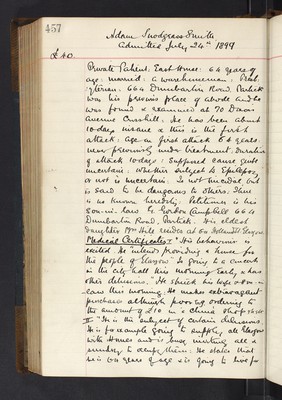 457
Adam Snodgrass Smith
Admitted July 24th 1899
£40
Private Patient. East House: 64 years of
age: married: a warehouseman: Presb-
yterian. 664 Dumbarton Road, Partick
was his previous place of abode and he
was found & examined at 70 Dixon
Avenue Crosshill. He has been about
10 days insane & this is the first
attack: age on first attack 64 years:
never previously under treatment. Duration
of attack 10 days: Supposed cause quite
uncertain: whether subject to Epilepsy
or not is uncertain: Is not suicidal but
is said to be dangerous to others. There
is no known heredity. Petitioner is his
son-in-law G. Gordon Campbell 664
Dumbarton Road, Partick. His eldest
daughter Mrs Mills resides at
Medical Certificates I "His behaviour is
excited. He intends providing a house for
the people of Glasgow. Is going to a concert
in the city hall this morning Early & has
other delusions." "He struck his son-in-
law this morning. He makes extravagant
purchases although poor eg ordering to
the amount of £10 in a china shop
II "He is the subject of certain delusions.
He is for example going to supply all Glasgow
with Homes and is busy writing all
sundry to occupy them: He states that
he is 64 years of age & is going to live for